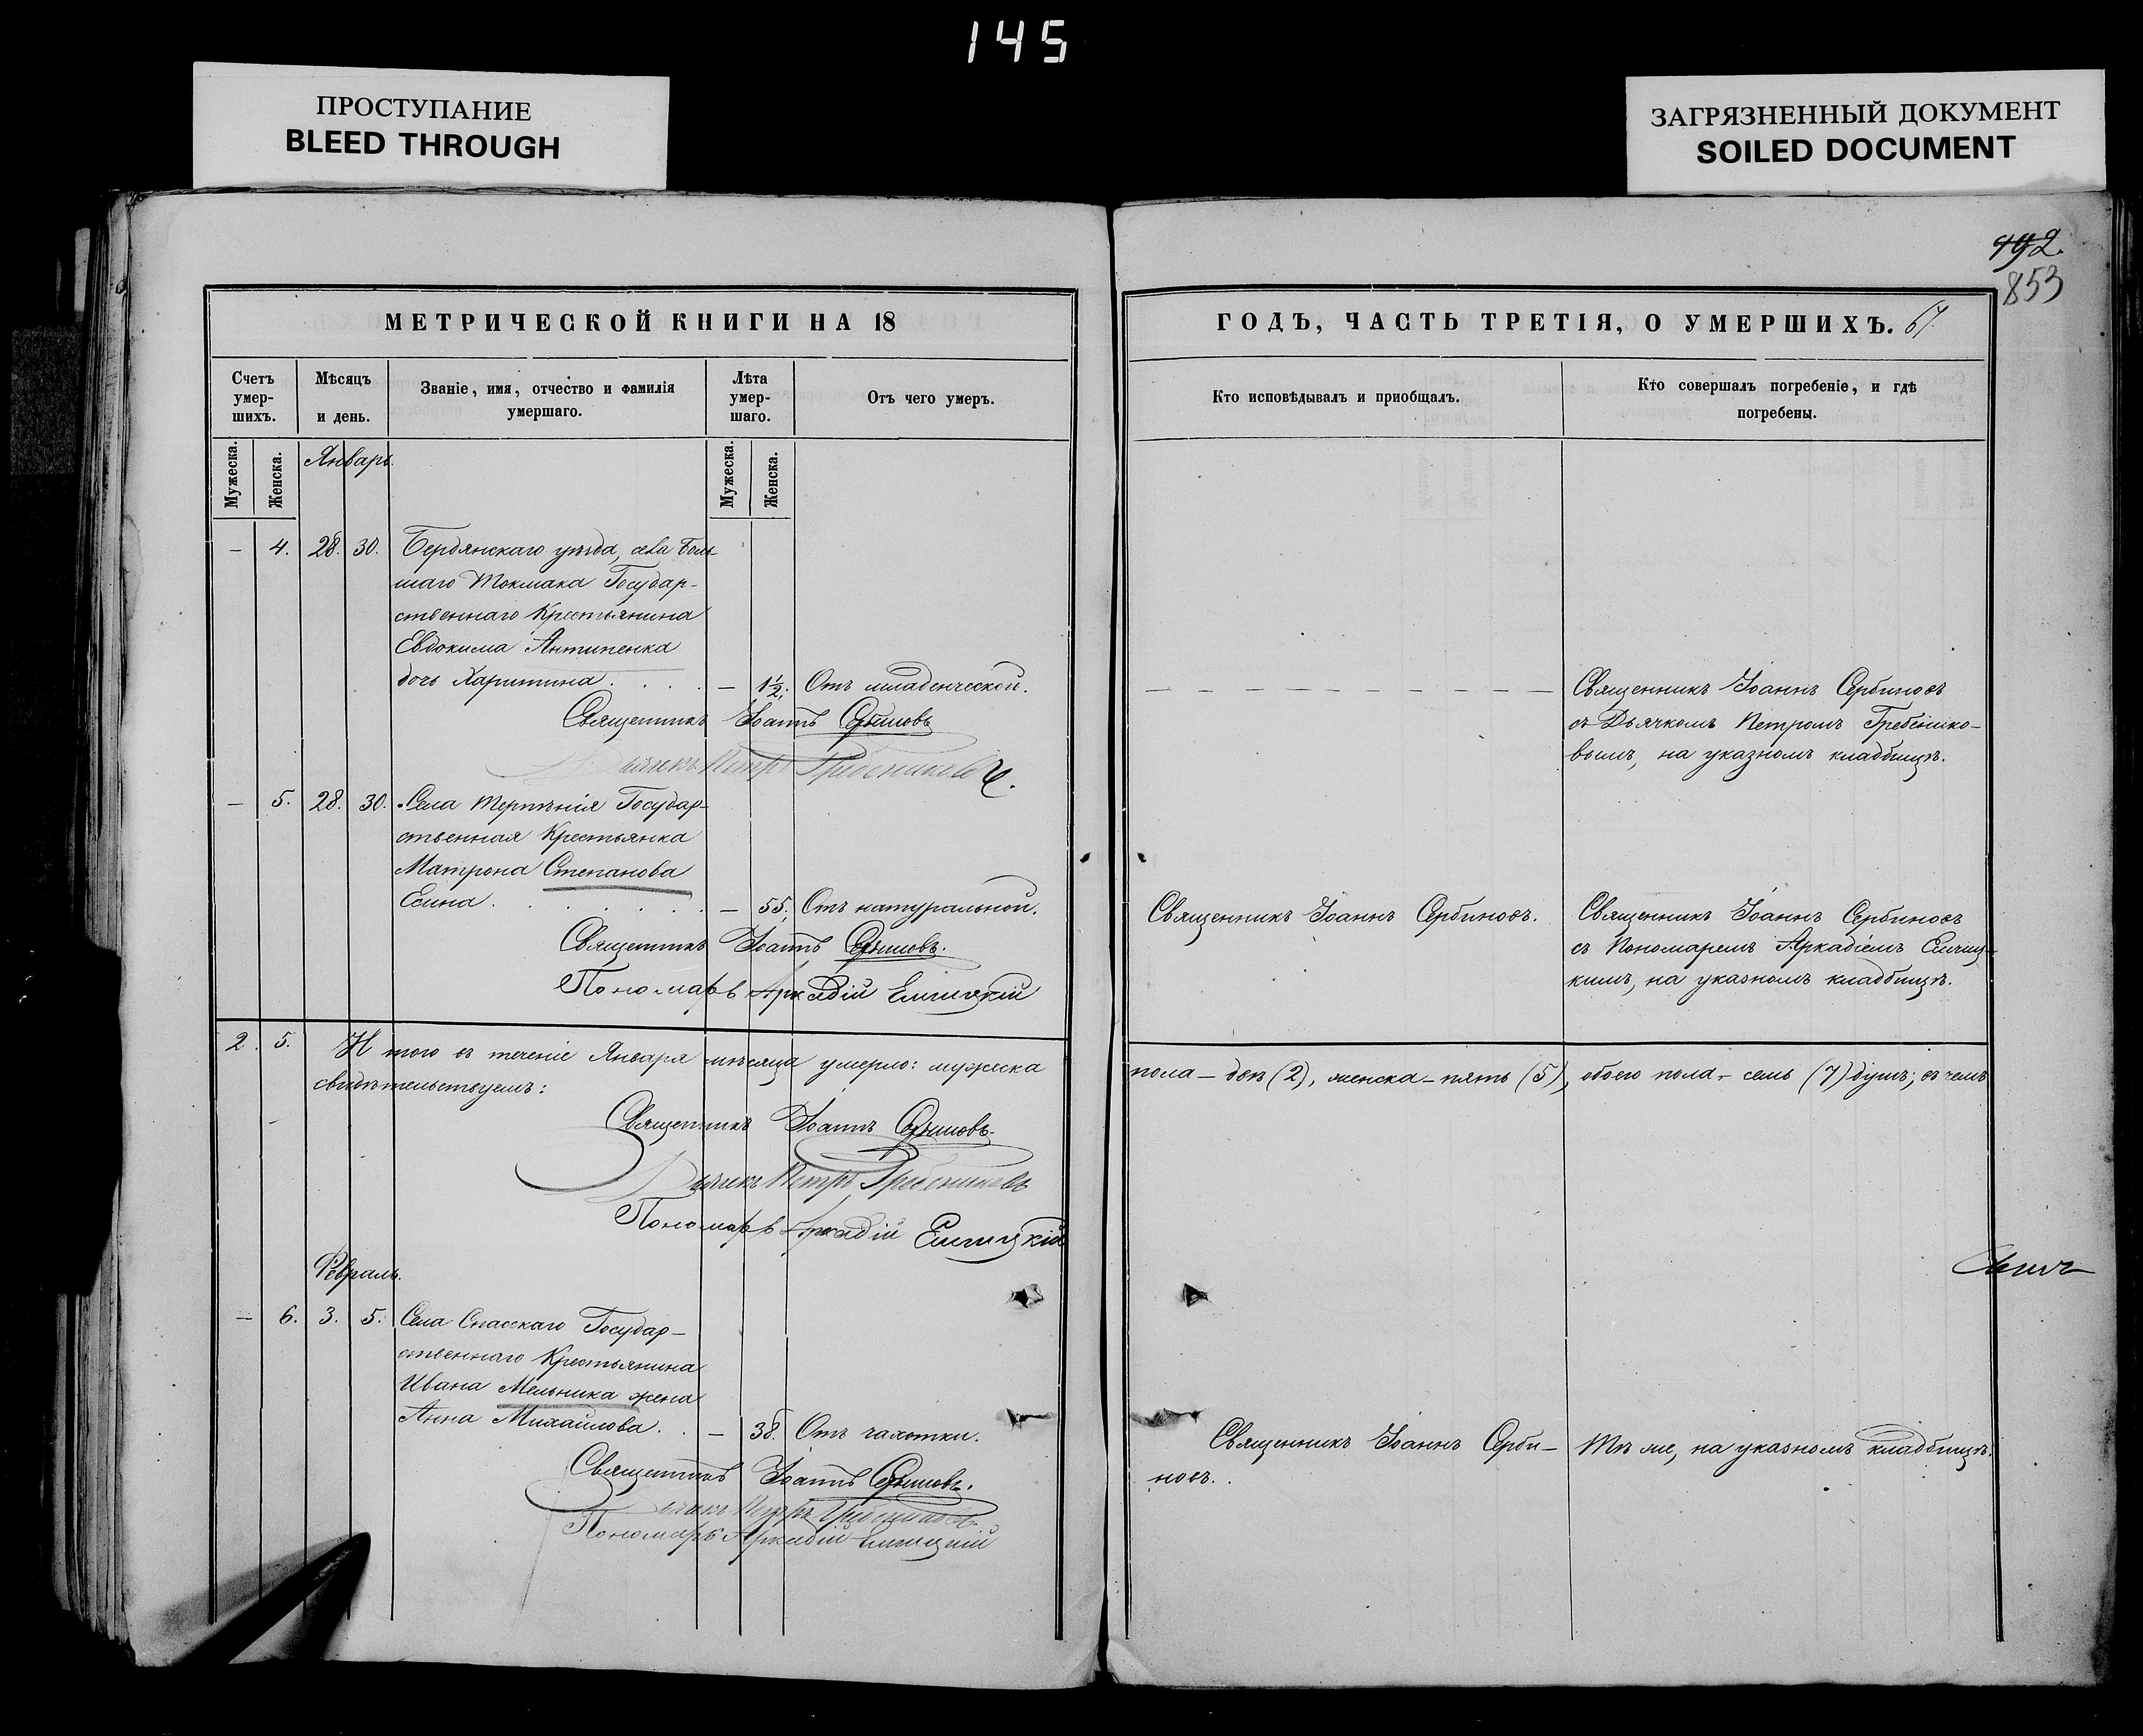 145
ПРОСТУПАНИЕ
BLEED THROUGH
ЗАГРЯЗНЕННЫЙ ДОКУМЕНТ
SOILED DOCUMENT
492.
853
МЕТРИЧЕСКОЙ КНИГИ НА 18
Счетъ умер-шихъ.
Мѣсяцъ и день.
Званіе, имя, отчество и фамилія умершаго.
Лѣта умер-шаго.
Отъ чего умеръ.
Мужеска.
Женска.
Январь.
Мужеска.
Женска.
— 4. 28. 30. Бердянскаго уѣзда, села Боль-
шаго Токмака Государ-
ственнаго Крестьянина
Евдокима Антипенка
дочь Харитина . . . . — 1½. Отъ младенческой.
Священникъ Іоаннъ Сербиновъ
Дьячекъ Петръ Гребенниковъ
— 5. 28. 30. Села Терпѣнія Государ-
ственная Крестьянка
Матрона Степанова
Есина . . . . . . — 55. Отъ натуральной.
Священникъ Іоаннъ Сербиновъ.
Пономарь Аркадій
2. 5. И того въ теченіе Января мѣсяца умерло: мужеска
свидѣтельствуемъ:
Священникъ Іоаннъ Сербиновъ
Дьячекъ Петръ Гребенниковъ
Пономарь Аркадій
Февраль.
— 6. 3. 5. Села Спасскаго Государ-
ственнаго Крестьянина
Ивана Мельника жена
Анна Михайлова . . — 38. Отъ чахотки.
Священникъ Іоаннъ Сербиновъ.
Дьячекъ Петръ Гребенниковъ
Пономарь Аркадій
ГОДЪ, ЧАСТЬ ТРЕТІЯ, О УМЕРШИХЪ. 67.
Кто исповѣдывалъ и пріобщалъ.
Кто совершалъ погребеніе, и гдѣ
погребены.
— — — — — — — — — — Священникъ Іоаннъ Сербиновъ
съ Дьячкомъ Петромъ Гребенико-
вымъ, на указномъ кладбищѣ.
Священникъ Іоаннъ Сербиновъ. Священникъ Іоаннъ Сербиновъ
съ Пономаремъ Аркадіемъ
кимъ, на указномъ кладбищѣ.
пола — два (2), женска — пять (5), обоего пола — семь (7) душъ; въ чемъ
Священникъ Іоаннъ Серби- Тѣ же, на указномъ кладбищѣ.
новъ.